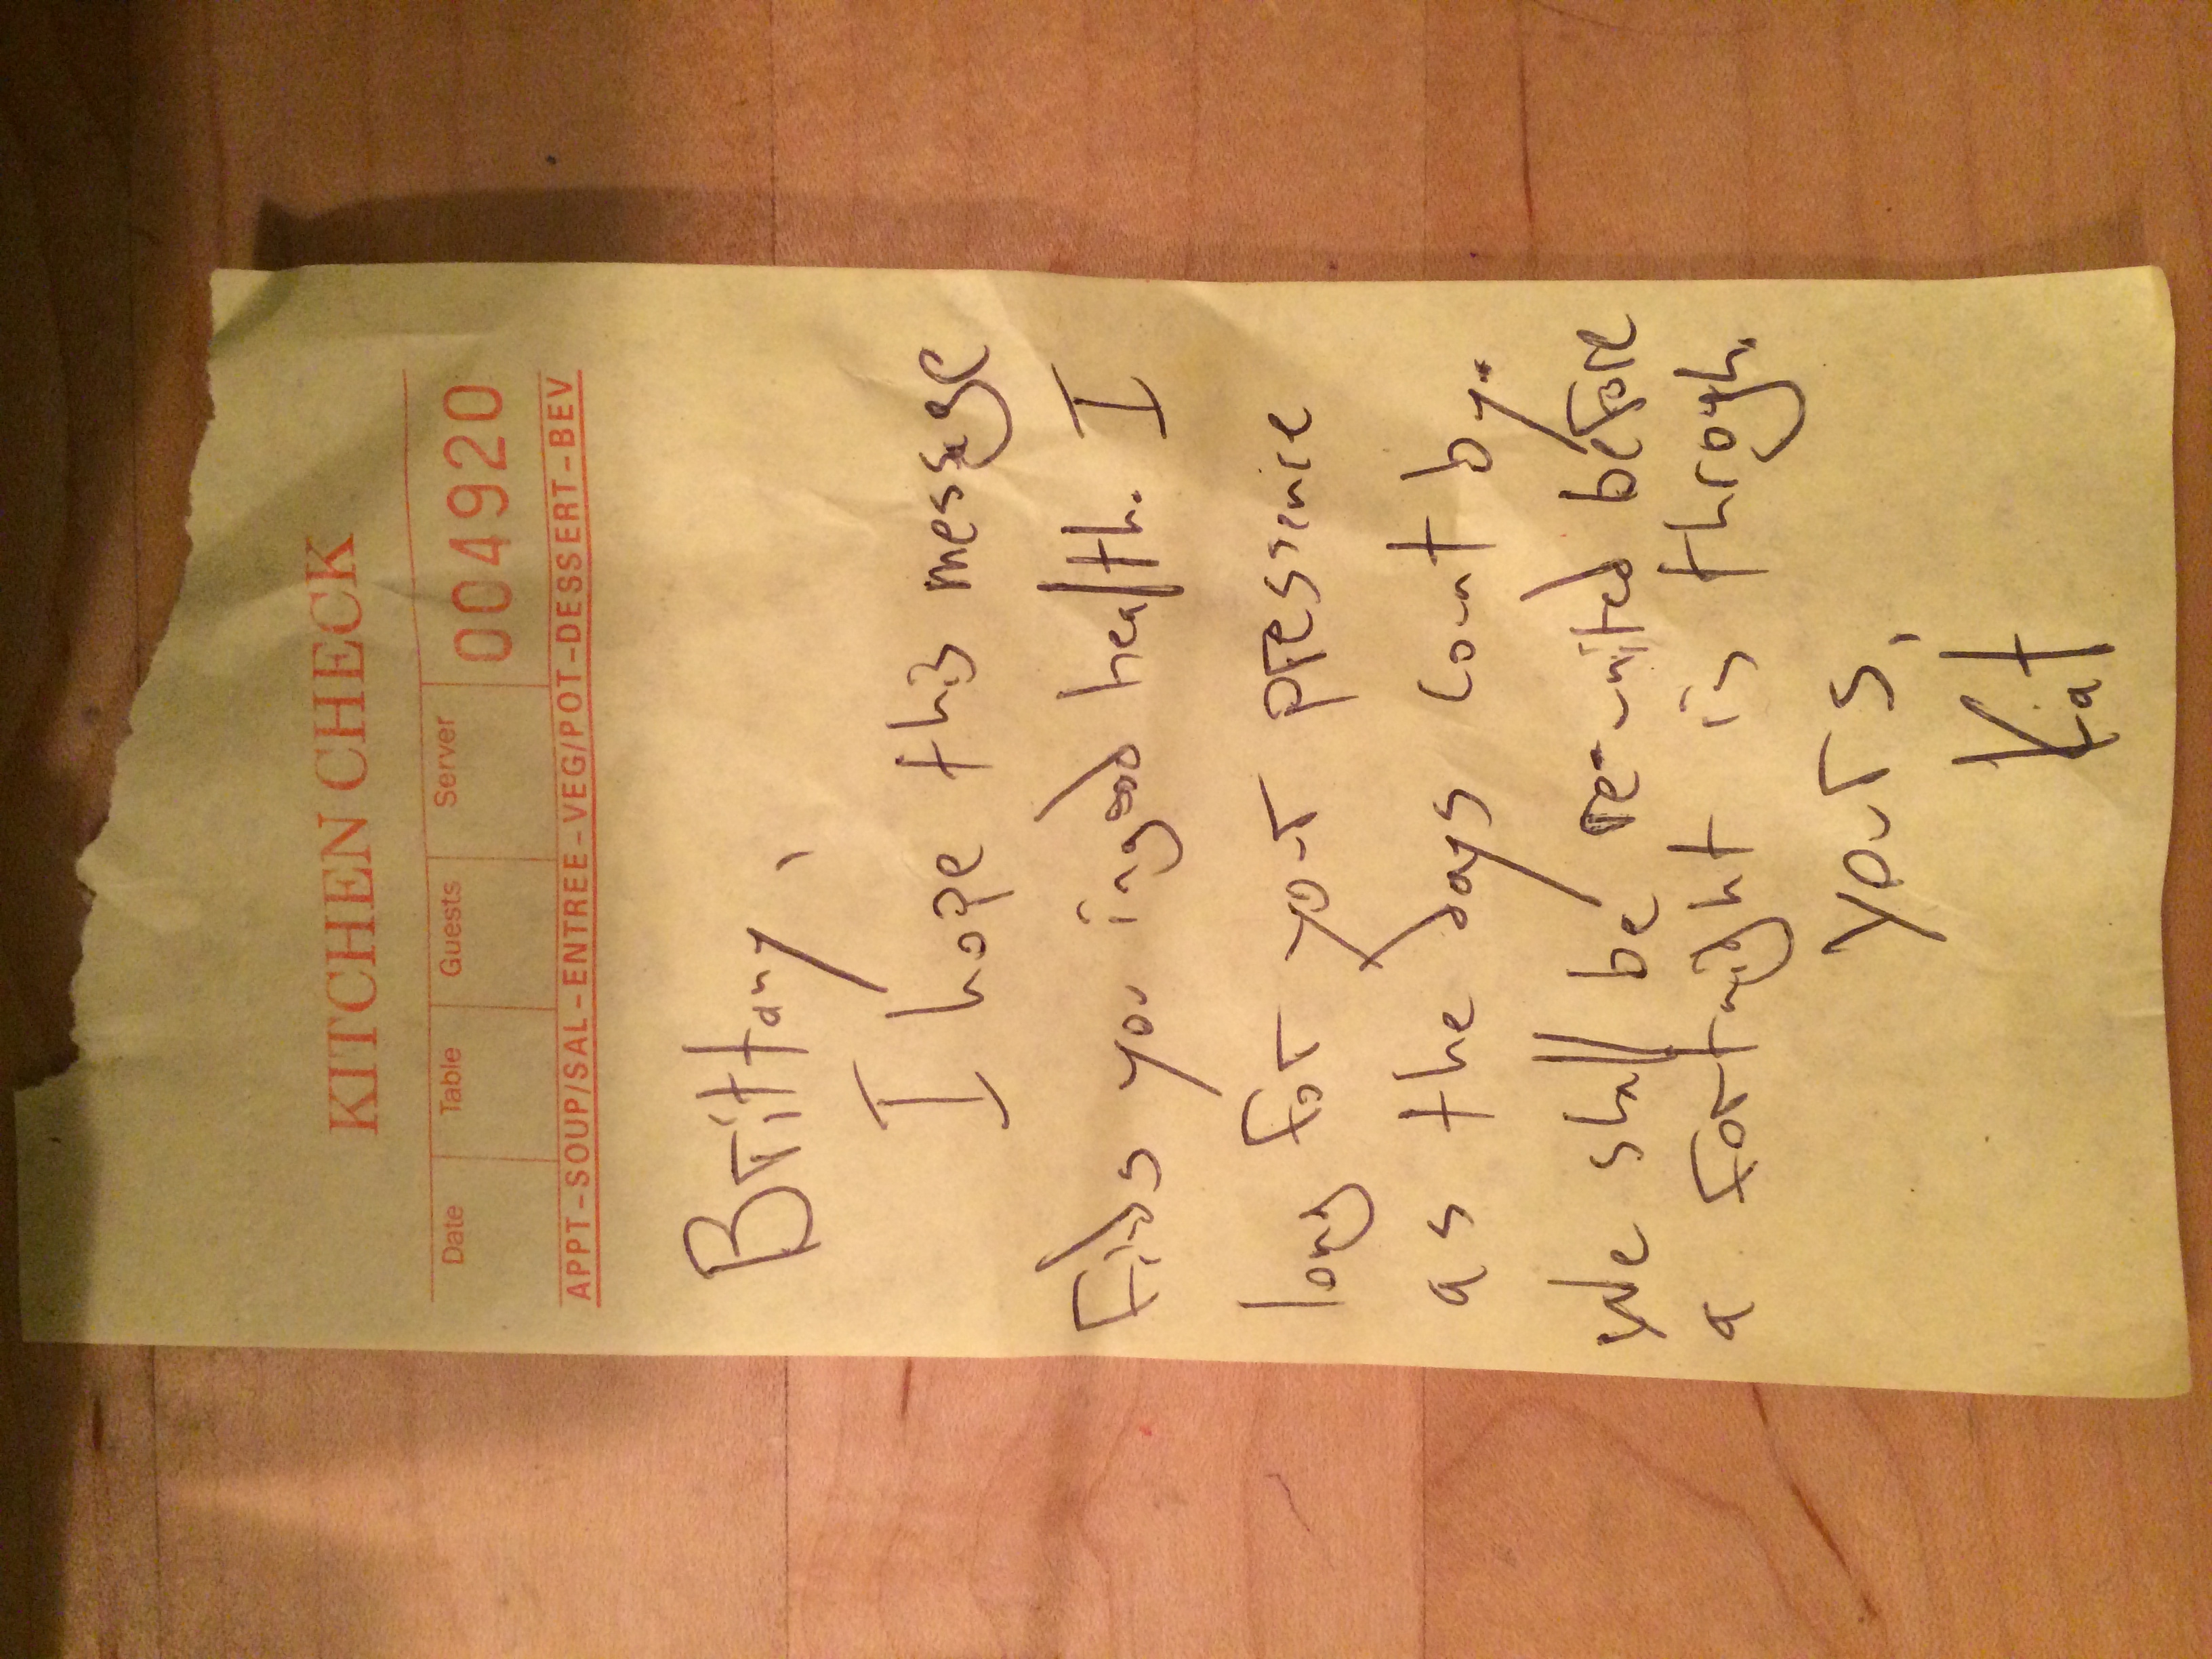 KITCHEN CHECK
Date Table Guests Server 004920
APPT-SOUP/SAL-ENTREE-VEG/POT-DESSERT-BEV
Brittany,
I hope this message
finds you in good health. I
long for your pressence
as the days count by.
We shall be re-united before
a fortnight is through.
Yours,
Kat